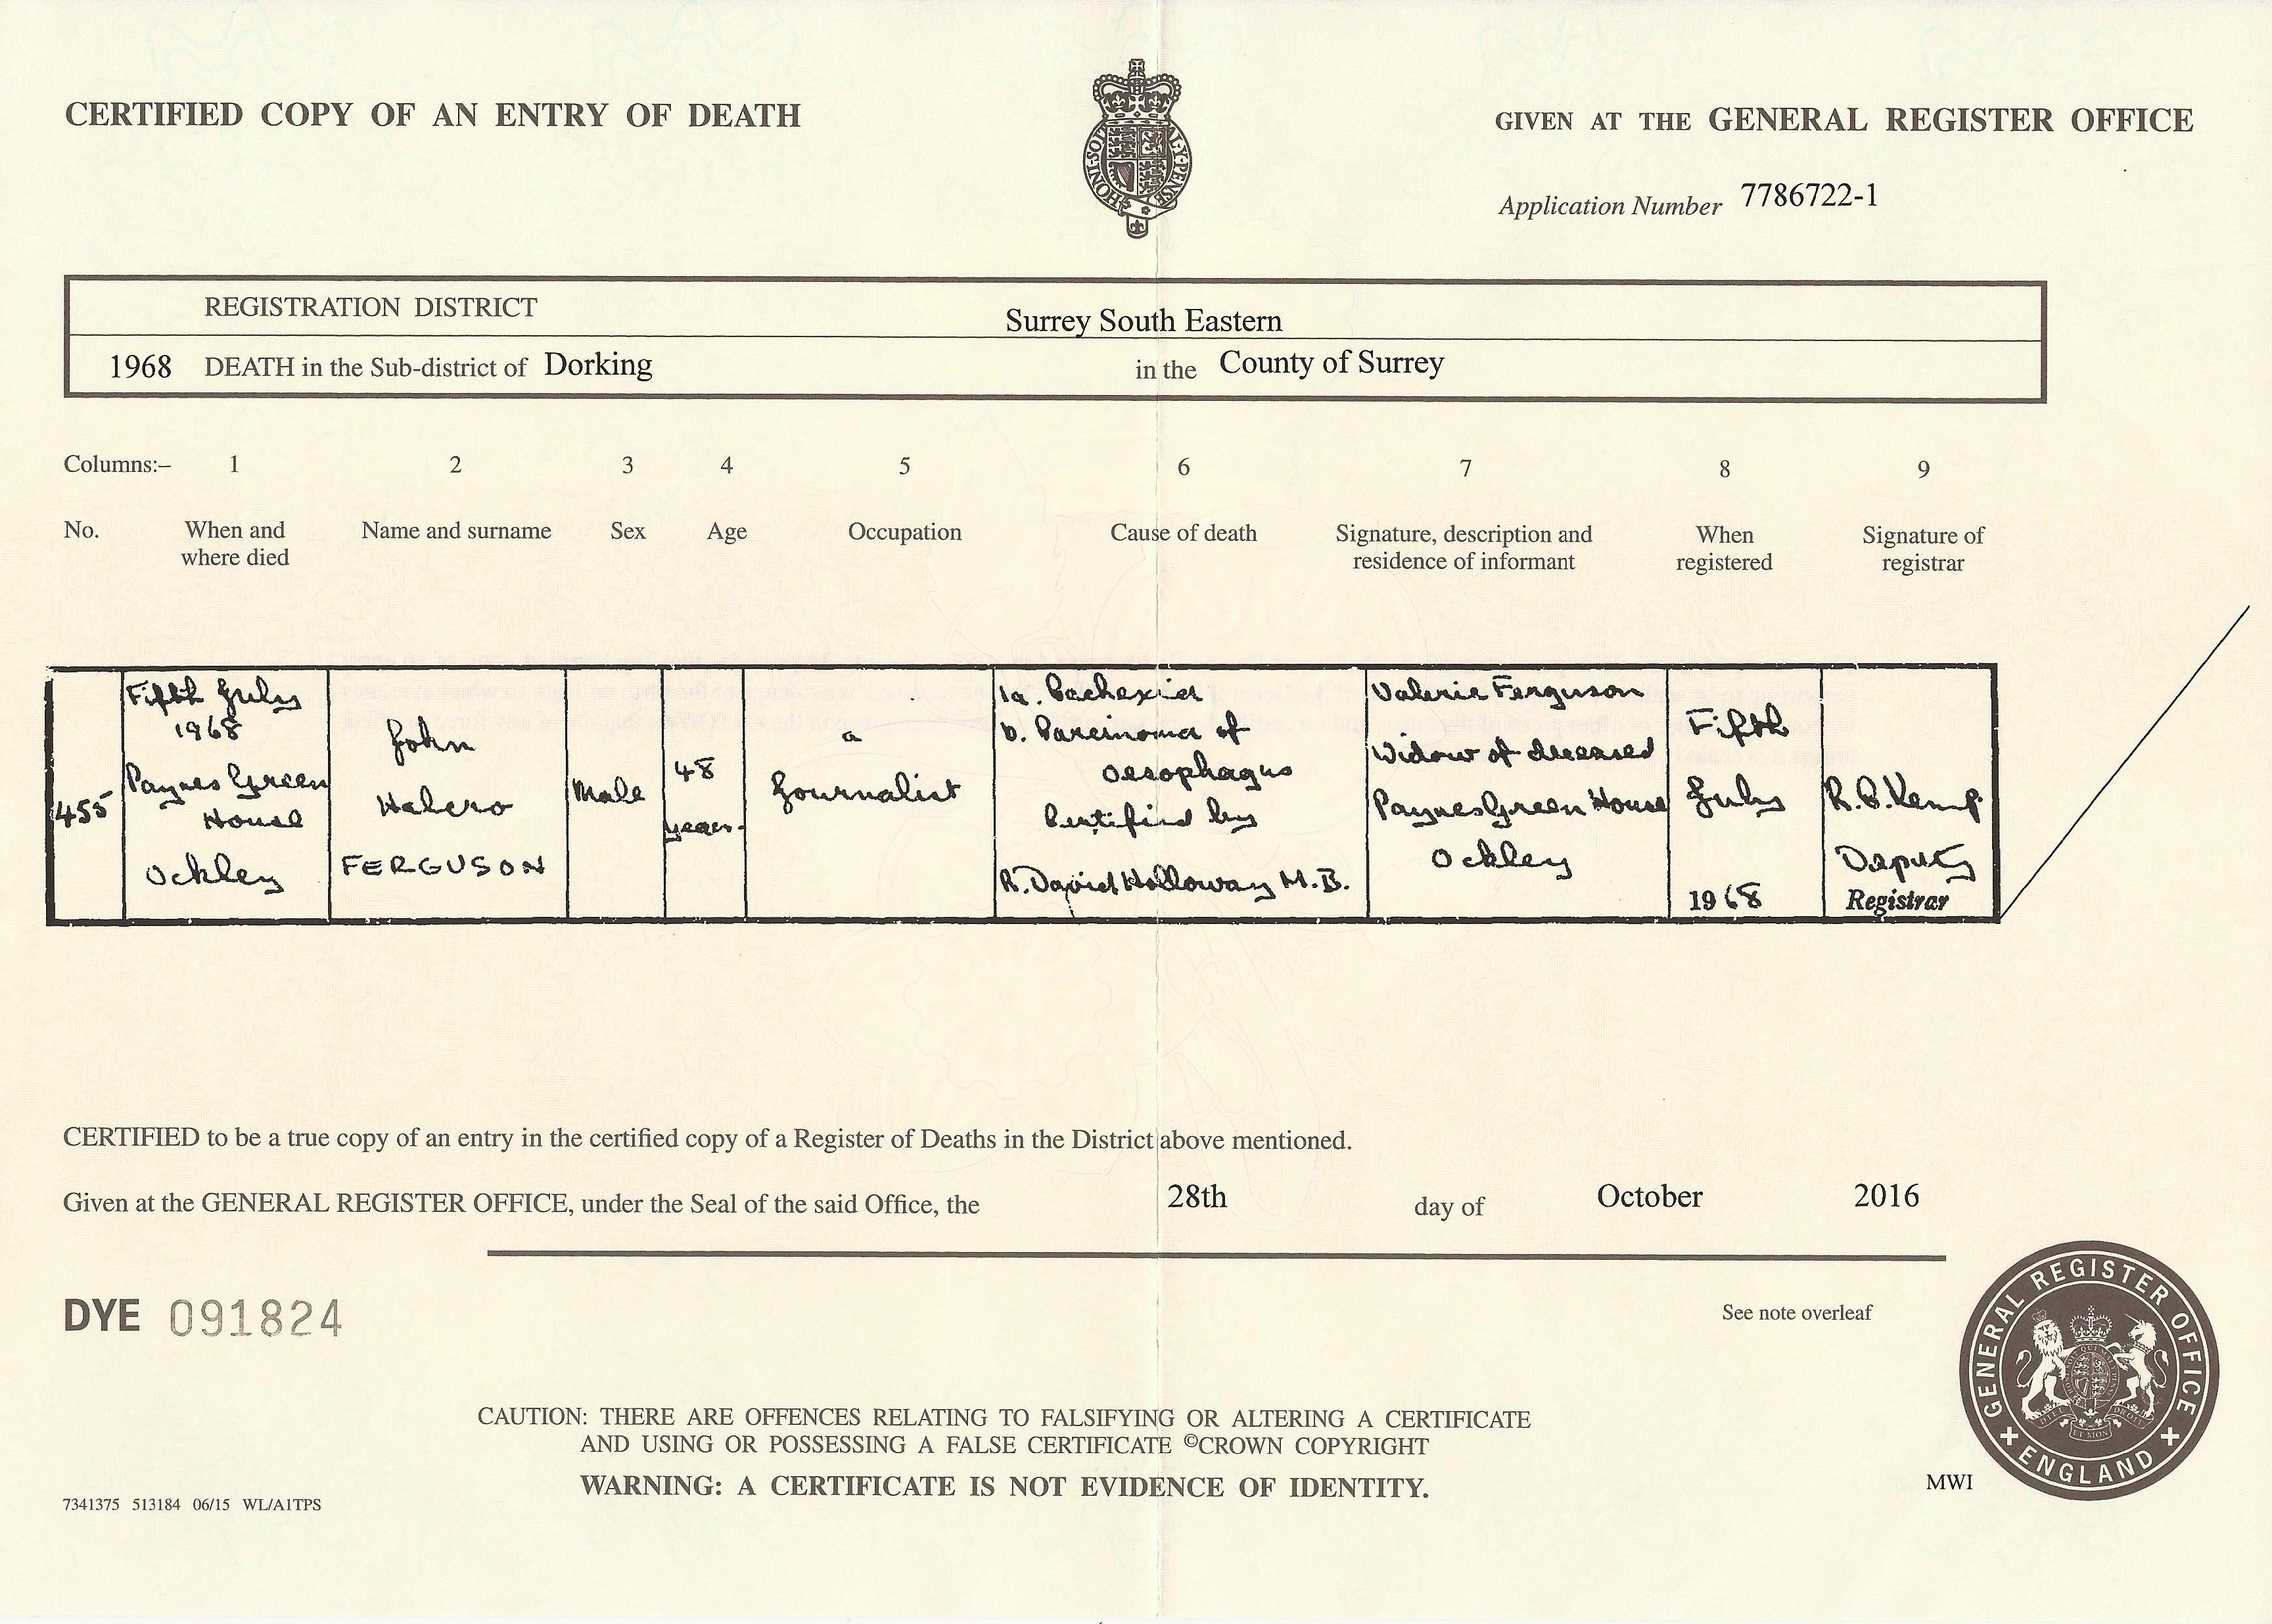 CERTIFIED COPY OF AN ENTRY OF DEATH
GIVEN AT THE GENERAL REGISTER OFFICE
Application Number 7786722-1
REGISTRATION DISTRICT Surrey South Eastern
1968 DEATH in the Sub-district of Dorking in the County of Surrey
Columns:– 1 2 3 4 5 6 7 8 9
No.
When and
where died
Name and surname
Sex
Age
Occupation
Cause of death
Signature, description and
residence of informant
When
registered
Signature of
registrar
455
Fifth July
1968
Paynes Green
House
Ockley
John
Halero
FERGUSON
Male
48
years.
a
Journalist
1a. Cachexia
b. Carcinoma of
oesophagus
Certified by
R. David Holloway M.B.
Valerie Ferguson
Widow of deceased
Paynes Green House
Ockley
Fifth
July
1968
R.B. Kemp.
Deputy
Registrar
CERTIFIED to be a true copy of an entry in the certified copy of a Register of Deaths in the District above mentioned.
Given at the GENERAL REGISTER OFFICE, under the Seal of the said Office, the 28th day of October 2016
DYE 091824
See note overleaf
GENERAL REGISTER OFFICE
ENGLAND
CAUTION: THERE ARE OFFENCES RELATING TO FALSIFYING OR ALTERING A CERTIFICATE
AND USING OR POSSESSING A FALSE CERTIFICATE ©CROWN COPYRIGHT
WARNING: A CERTIFICATE IS NOT EVIDENCE OF IDENTITY.
7341375 513184 06/15 WL/A1TPS
MWI